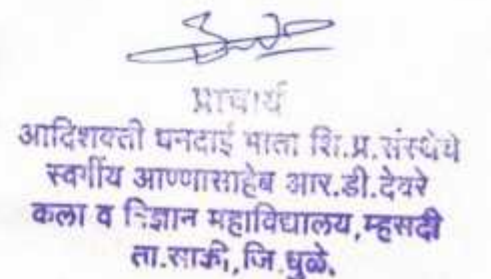 प्राचार्य
आदिशक्ती धनदाई माता शि.प्र.संस्थेचे
स्वर्गीय आण्णासाहेब आर.डी.देवरे
कला व विज्ञान महाविद्यालय,म्हसदी
ता.साक्री,जि.धुळे.